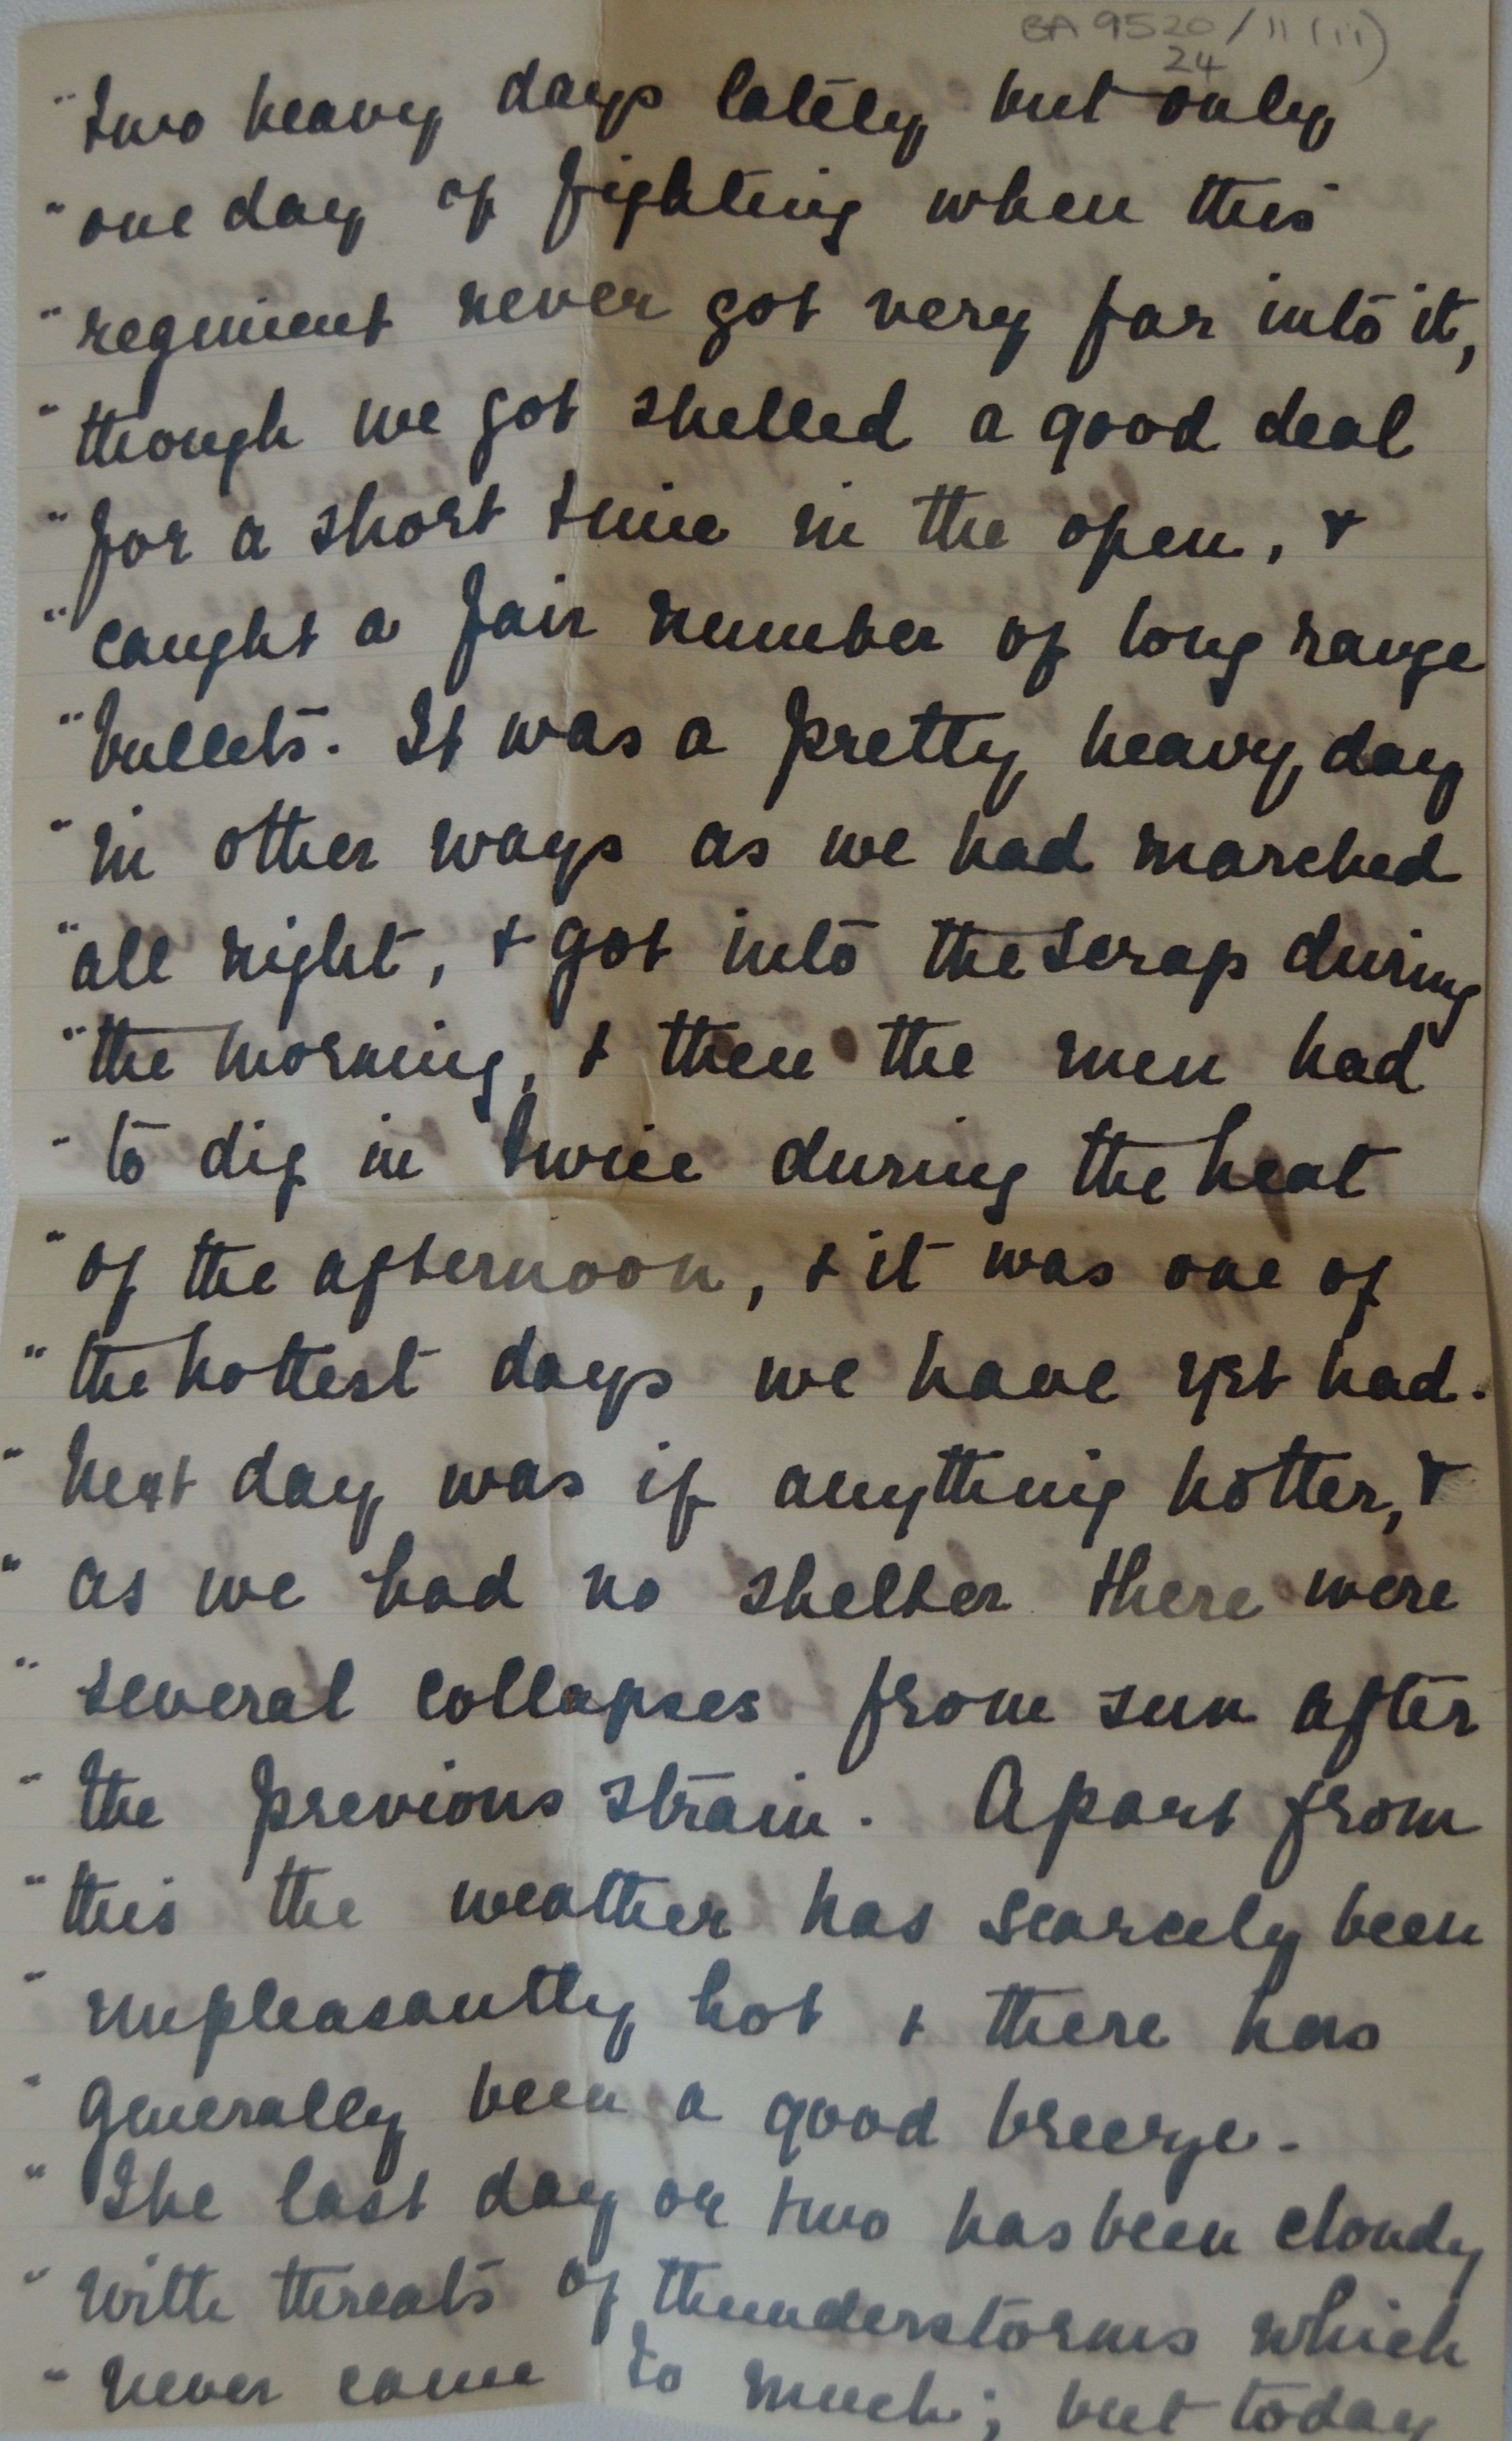 BA 9520/11(iii)
24
" two heavy days lately but only
" one day of fighting when this
" regiment never got very far into it,
" though we got shelled a good deal
" for a short time in the open, &
" caught a fair number of long range
" bullets. It was a pretty heavy day
" in other ways as we had marched
" all night, & got into the scrap during
" the morning, & then the men had
" to dig in twice during the heat
" of the afternoon, & it was one of
" the hottest days we have yet had.
" Next day was if anything hotter, &
" as we had no shelter there were
" several collapses from sun after
" the previous strain. Apart from
" this the weather has scarcely been
" unpleasantly hot & there has
" generally been a good breeze.
" The last day or two has been cloudy
" with threats of thunderstorms which
" never came to much; but today